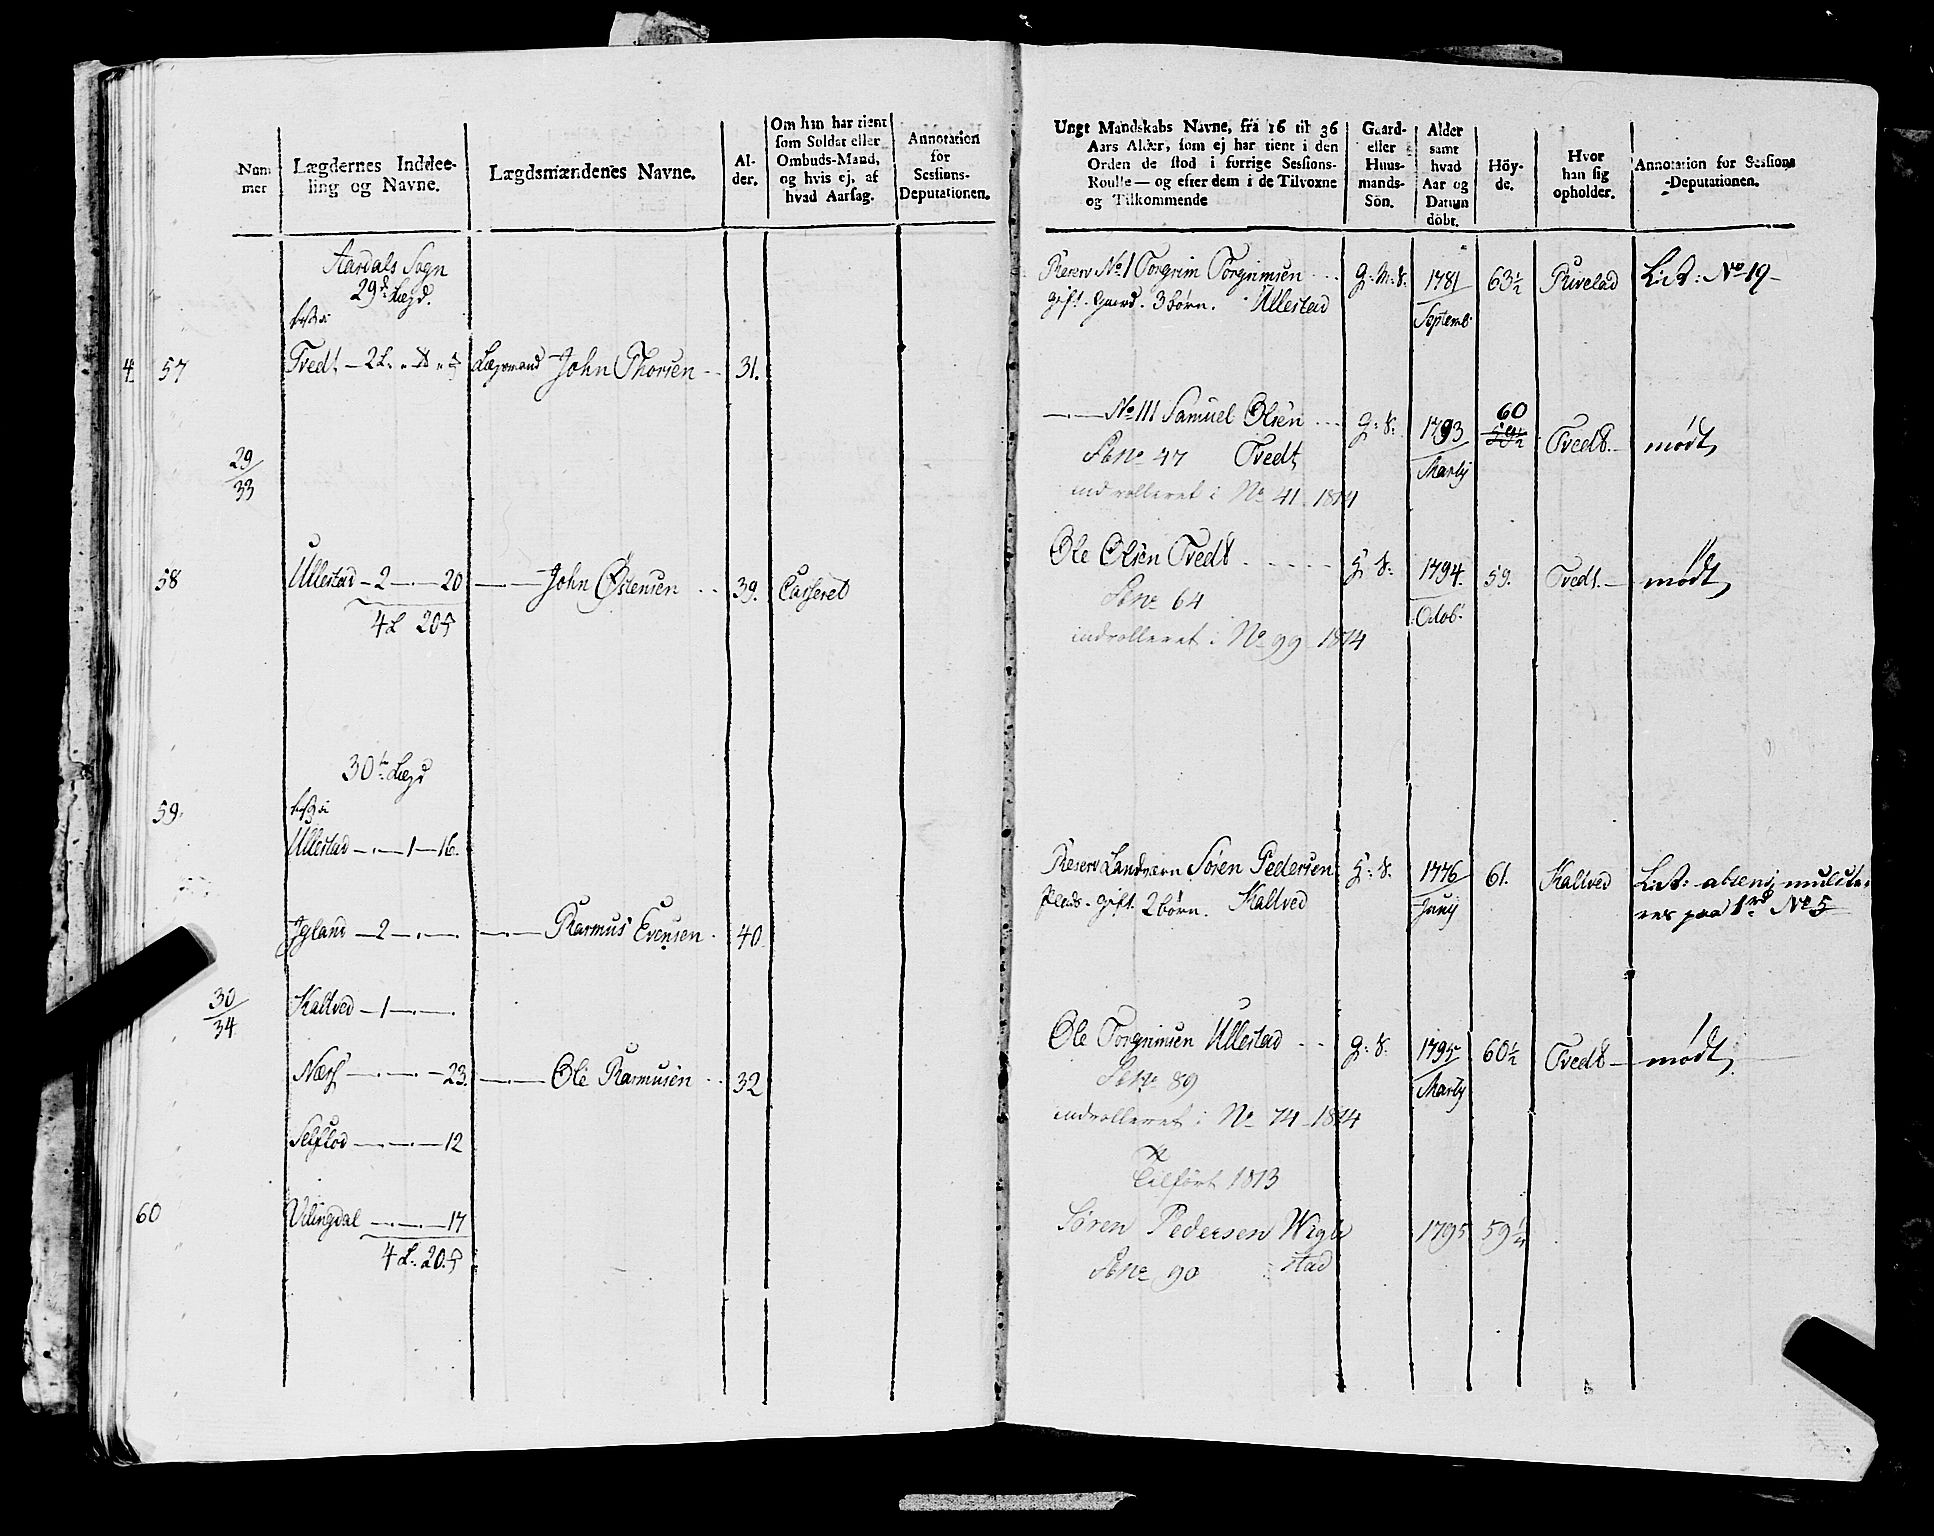 Num
mer
Lægdernes Inddee-
ling og Navne.
Lægdsmændenes Navne.
Al-
der.
Om han har tient
som Soldat eller
Ombuds-Mand,
og hvis ej, af
hvad Aarsag.
Annotation
for
Sessions-
Deputationen.
Aardals Sogn
29d Lægd.
4 57 Tvedt - 2 L. Lægsmand John Thorsen 31.
29/33
58 Ullestad - 2 - 20 John Østensen 39. Casseret
4 L 20
30te Lægd
59.
Ullestad - 1 - 16.
Igland - 2 Rasmus Evensen 40
30/34
Kaltved - 1
Nærs - 23. Ole Rasmusen 32
- 12
60 Valingdal - 17
4 L. 20.
Ungt Mandskabs Navne, fra 16 til 36
Aars Alder, som ej har tient i den
Orden de stod i forrige Sessions-
Roulle — og efter dem i de Tilvoxne
og Tilkommende
Gaard-
eller
Huus-
mands-
Sön.
Alder
samt
hvad
Aar og
Datum
döbt.
Höy-
de.
Hvor
han sig
opholder.
Annotation for Sessions
-Deputationen.
Reserv No 1 Torgrim Torgrimsen G: M: S: 1781 63½ Rivelad List: No 19
gift. Gaard. 3 børn. Ullestad Septemb.
No 111 Samuel Olsen G: S: 1793 60 59½ Tvedt mødt
No 47 Tvedt Martj
indrolleret i No 41 1814
Ole Olsen Tvedt G: S: 1794. 59. Tvedt. mødt
No 64 Octob.
indrolleret i No 99 1814
Reserv Landværn Søren Pedersen G: S: 1776 61. Kaltved List: absens
Plads. gift. 2 børn. Kaltved Junij paa 1rd No 5
Ole Torgrimsen Ullestad G: S: 1795 60½ Tvedt mødt
No 89 Martj
indrolleret i No 74 1814
Tilført 1813
Søren Pedersen Wigle 1795 59¼
No 90 stad